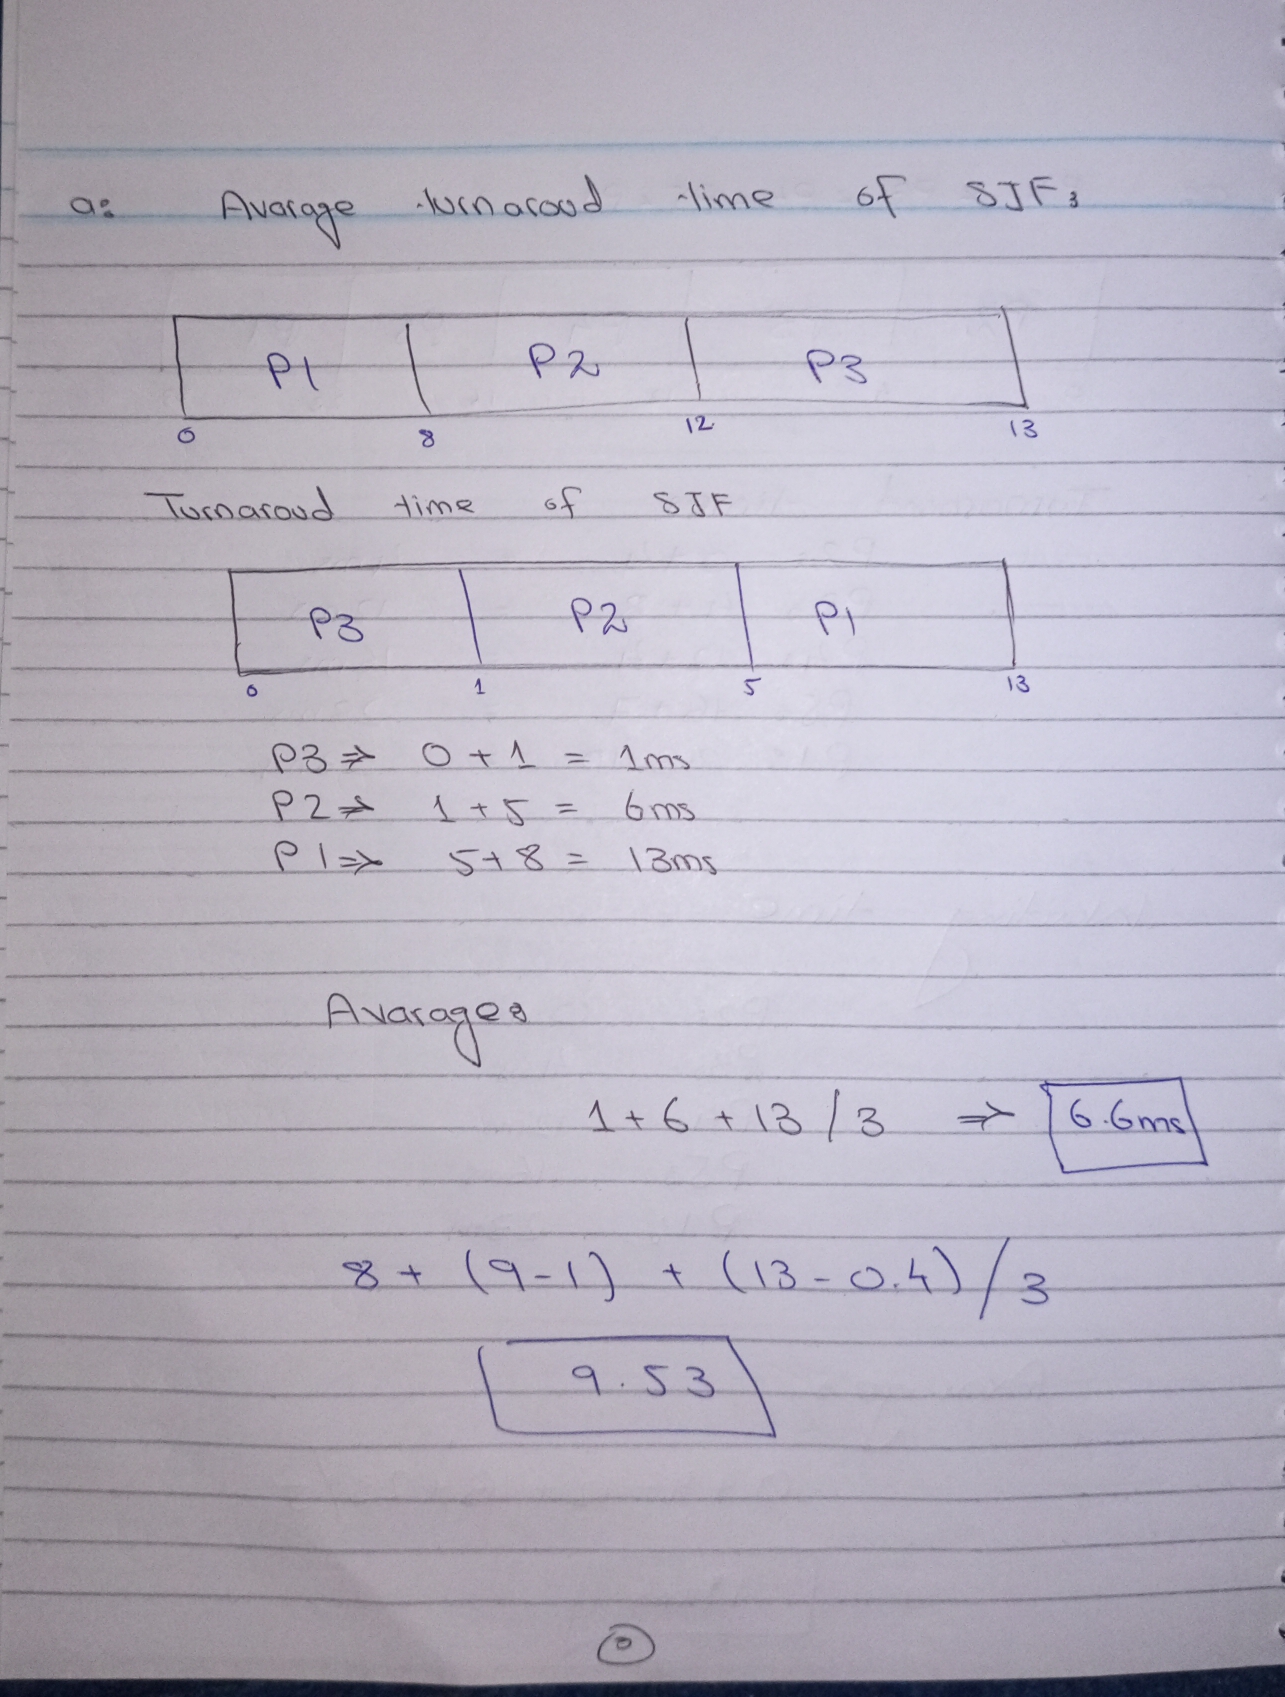 a: Avarage turnaroud time of SJF:
P1 P2 P3
0 8 12 13
Turnaroud time of SJF
P3 P2 P1
0 1 5 13
P3 ⇒ 0 + 1 = 1ms
P2 ⇒ 1 + 5 = 6ms
P1 ⇒ 5 + 8 = 13ms
Avarage:
1 + 6 + 13 / 3 ⇒ 6.6ms
8 + (9-1) + (13-0.4) / 3
9.53